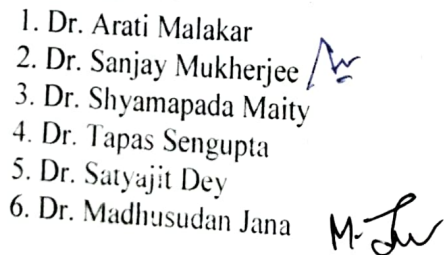 1. Dr. Arati Malakar
2. Dr. Sanjay Mukherjee
3. Dr. Shyamapada Maity
4. Dr. Tapas Sengupta
5. Dr. Satyajit Dey
6. Dr. Madhusudan Jana